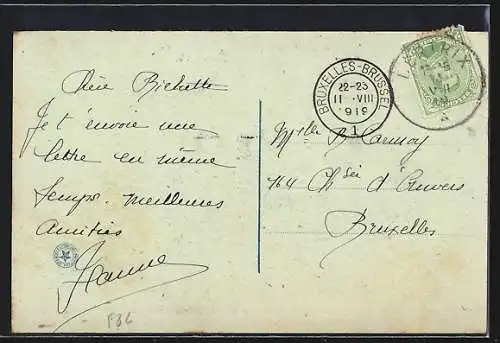 Chère Bichette
Je t'envoie une
lettre en même
temps. Meilleures
amitiés
Jeanne
F36
BRUXELLES-BRUSSEL
22-23
11 VIII
1919
1
Mlle B.
164 Chsée d'Anvers
Bruxelles